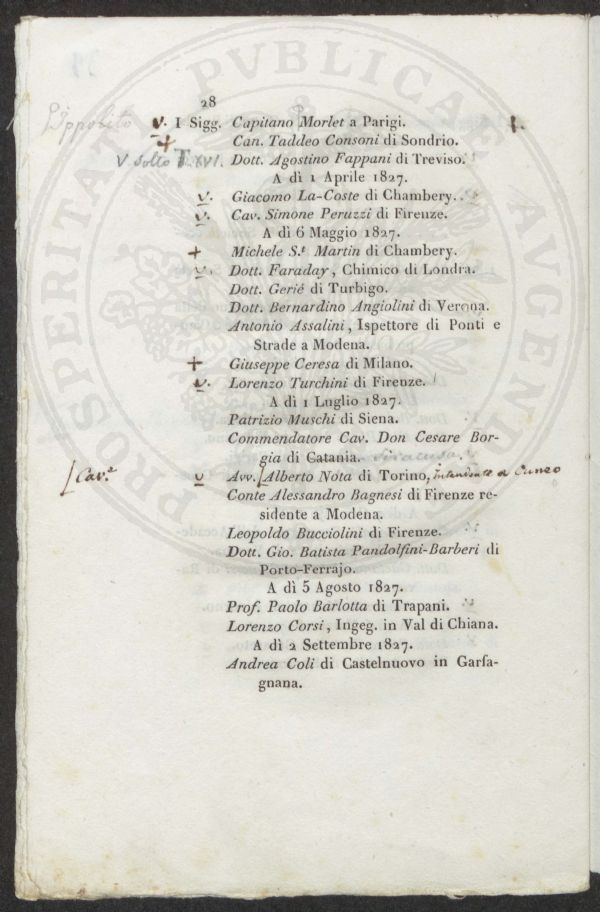 28
Ippolito V. I Sigg. Capitano Morlet a Parigi.
+ Can. Taddeo Consoni di Sondrio.
V Sotto T. XVI. Dott. Agostino Fappani di Treviso.
A dì 1 Aprile 1827.
v. Giacomo La-Coste di Chambery.
v. Cav. Simone Peruzzi di Firenze.
A dì 6 Maggio 1827.
+ Michele S.t Martin di Chambery.
v. Dott. Faraday, Chimico di Londra.
Dott. Gerié di Turbigo.
Dott. Bernardino Angiolini di Verona.
Antonio Assalini, Ispettore di Ponti e
Strade a Modena.
+ Giuseppe Ceresa di Milano.
v. Lorenzo Turchini di Firenze.
A dì 1 Luglio 1827.
Patrizio Muschi di Siena.
Commendatore Cav. Don Cesare Bor-
gia di Catania. Siracusa.
[Cav.e v Avv. [Alberto Nota di Torino, Intendente a Cuneo
Conte Alessandro Bagnesi di Firenze re-
sidente a Modena.
Leopoldo Bucciolini di Firenze.
Dott. Gio. Batista Pandolfini-Barberi di
Porto-Ferrajo.
A dì 5 Agosto 1827.
Prof. Paolo Barlotta di Trapani.
Lorenzo Corsi, Ingeg. in Val di Chiana.
A dì 2 Settembre 1827.
Andrea Coli di Castelnuovo in Garfa-
gnana.
PROSPERITATI PVBLICAE AVGENDAE